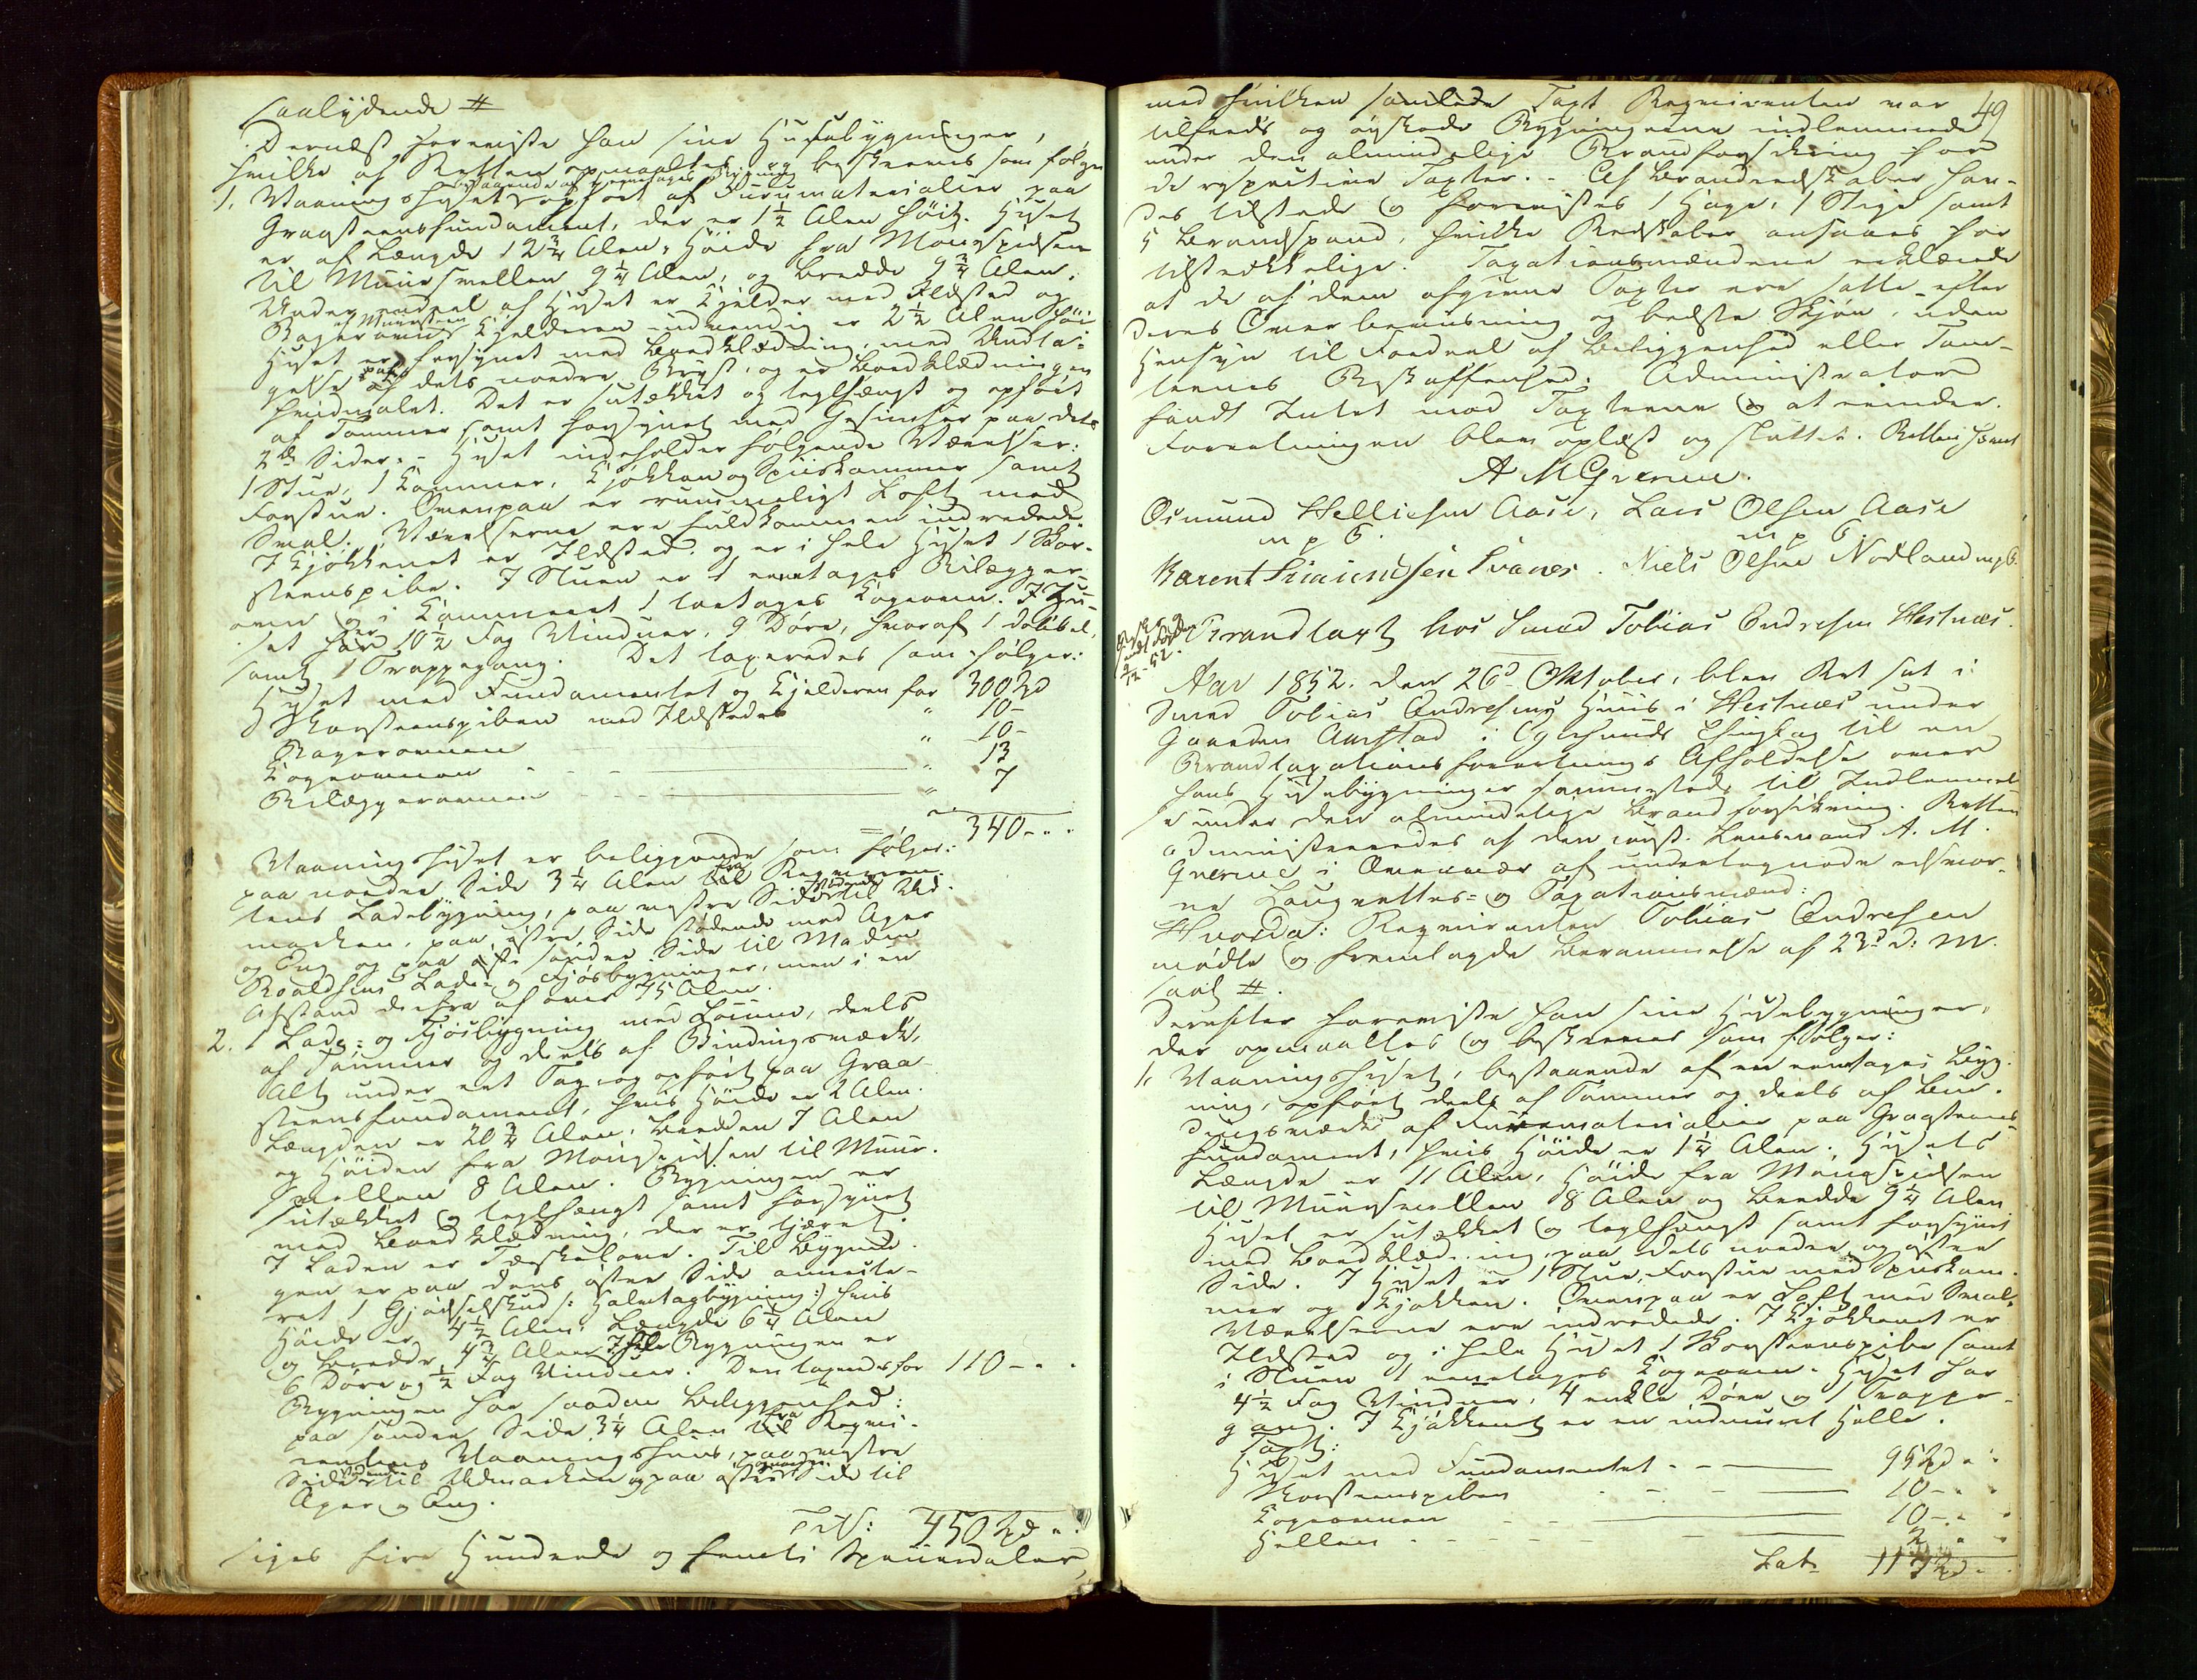 saalydende #
Dernæst foreviste han sine Huusebygninger,
hvilke af Retten opmaaltes og beskreves som følger
bestaaende af eenetages Bygning
1. Vaaningshuset opført af Furumaterialier paa
Graasteensfundament, der er 1½ Alen høit. Huset
er af Længde 12¾ Alen, Høide fra Mønespidsen
til Muursvellen 9¼ Alen, og Bredde 9¾ Alen.
Under endeel af Huset er Kjelder med Ildsted og
af Muursteen
Bagerovn Kjelderen indvendig er 2½ Alen høi
Huset er forsynet med Bordklædning, med Undta-
gelse paa dets nordre Bryst, og er Bordklædningen
hvidmalet. Det er sutækket og teglhængt og opført
af Tømmer samt forsynet med Gesimser paa dets
2de Sider. - Huset indeholder følgende Værelser:
1 Stue, 1 Kammer, Kjøkken og Spiiskammer samt
Forstue. Ovenpaa er rummeligt Loft med
Sval. Værelserne ere fuldkommen indredede.
I Kjøkkenet er Ildsted og er i hele Huset 1 Skor-
steenspibe. I Stuen er 1 eenetages Bilægger-
ovn og i Kammeret 1 toetages Kogeovn. I Hu-
set er 10½ Fag Vinduer, 9 Døre, hvoraf 1 dobbel,
samt 1 Trappegang. Det taxeredes som følger:
Huset med Fundamentet og Kjelderen for 300 Spd
Skorsteenspiben med Ildstedet " 10 -
Bagerovnen " 10 -
Kogeovnen " 13
Bilæggerovnen " 7
340 - " "
Vaaningshuset er beliggende som følger:
paa nordre Side 3¼ Alen fra Reqviren-
tens Ladebygning, paa vestre Side stødende til Ud-
marken, paa østre Side stødende med Ager
og Eng og paa søndre Side til Mads
Roaldsens Lade- og Fjøsbygninger, men i en
Afstand derfra af over 75 Alen.
2. 1 Lade- og Fjøsbygning med Løinne, deels
af Tømmer og deels af Bindingsværk,
Alt under eet Tag og opført paa Graa-
steensfundament, hvis Høide er 2 Alen.
Længden er 20¾ Alen, Bredden 7 Alen
og Høiden fra Mønespidsen til Muur-
svellen 8 Alen. Bygningen er
sutækket og teglhængt samt forsynet
med Bordklædning, der er tjæret.
I Laden er Tærskelove. Til Bygnin-
gen er paa dens østre Side anmele-
ret 1 Gjødselskud /: Halvtagbygning :/ hvis
Høide er 4½ Alen, Længde 6¼ Alen
og Bredde 4¾ Alen I hele Bygningen er
6 Døre og ½ Fag Vinduer. Den taxeredes for 110 - " "
Bygningen har saadan Beliggenhed:
paa søndre Side 3¼ Alen fra Reqvi-
rentens Vaaningshuus, paa vestre
Side stødende til Udmarken og paa østre Side til
Ager og Eng.
Tils: 450 Spd " "
siges fire Hundrede og femti Speciedaler,
49
med hvilken samlede Taxt Reqvirenten var
tilfreds og ønskede Bygningerne indlemmede
under den almindelige Brandforsikring for
de respective Taxter. - Af Brandredskaber fan-
des tilstede og forevistes 1 Hage, 1 Stige samt
5 Brandspand, hvilke Redskaber ansaaes for
tilstrækkelige. Taxationsmændene erklærede
at de af dem afgivne Taxter ere satte efter
deres Overbeviisning og bedste Skjøn, uden
Hensyn til Fordeel af Beliggenhed eller Tom-
ternes Beskaffenhed. Administrator
fandt Intet mod Taxterne at erindre.
Forretningen blev oplæst og sluttet. Retten hævet
A M Gverne.
Osmund Helliesen Aase, Lars Olsen Aase
m p G. m p G.
Barent Simundsen Svanes. Niels Olsen Nodland mpG.
Brandtaxt hos Smed Tobias Endresen Hestnæs.
Aar 1852. den 26d Oktober, blev Ret sat i
Smed Tobias Endresens Huus i Hestnæs under
Gaarden Aarstad i Egersunds Thinglag til en
Brandtaxationsforretnings Afholdelse over
hans Huusebygninger sammesteds til Indlemmel-
se under den almindelige Brandforsikring. Retten
administreredes af den const. Lensmand A. M.
Gverne i Overvær af undertegnede edsvor-
ne Laugrettes- og Taxationsmænd:
Hvorda: Reqvirenten Tobias Endresen
mødte og fremlagde Berammelse af 23d d: M.
saal #.
Derefter foreviste han sine Huusebygninger,
der opmaaltes og beskreves som følger:
1. Vaaningshuset, bestaaende af en eenetages Byg-
ning, opført deels af Tømmer og deels af Bin-
dingsværk af Furumaterialier paa Graasteens-
fundament, hvis Høide er 1¼ Alen. Husets
Længde er 11 Alen, Høide fra Mønespidsen
til Muursvellen 8 Alen og Bredde 9¼ Alen
Huset er sutækket og teglhængt samt forsynet
med Bordklædning paa dets nordre og østre
Side. I Huset er 1 Stue, Forstue med Spiiskam-
mer og Kjøkken. Ovenpaa er Loft med Sval.
Værelserne ere indredede. I Kjøkkenet er
Ildsted og i hele Huset 1 Skorsteenspibe samt
i Stuen 1 eenetages Kogeovn. Huset har
4½ Fag Vinduer, 4 enkle Døre og 1 Trappe-
gang. I Kjøkkenet er en indmuret Helle.
Taxt:
Huset med Fundamentet - - 95 Spd " "
Skorsteenspiben - - - 10 - " "
Kogeovnen - - 10 - " "
Hellen - - - 2 " "
Lat. 117 Spd "